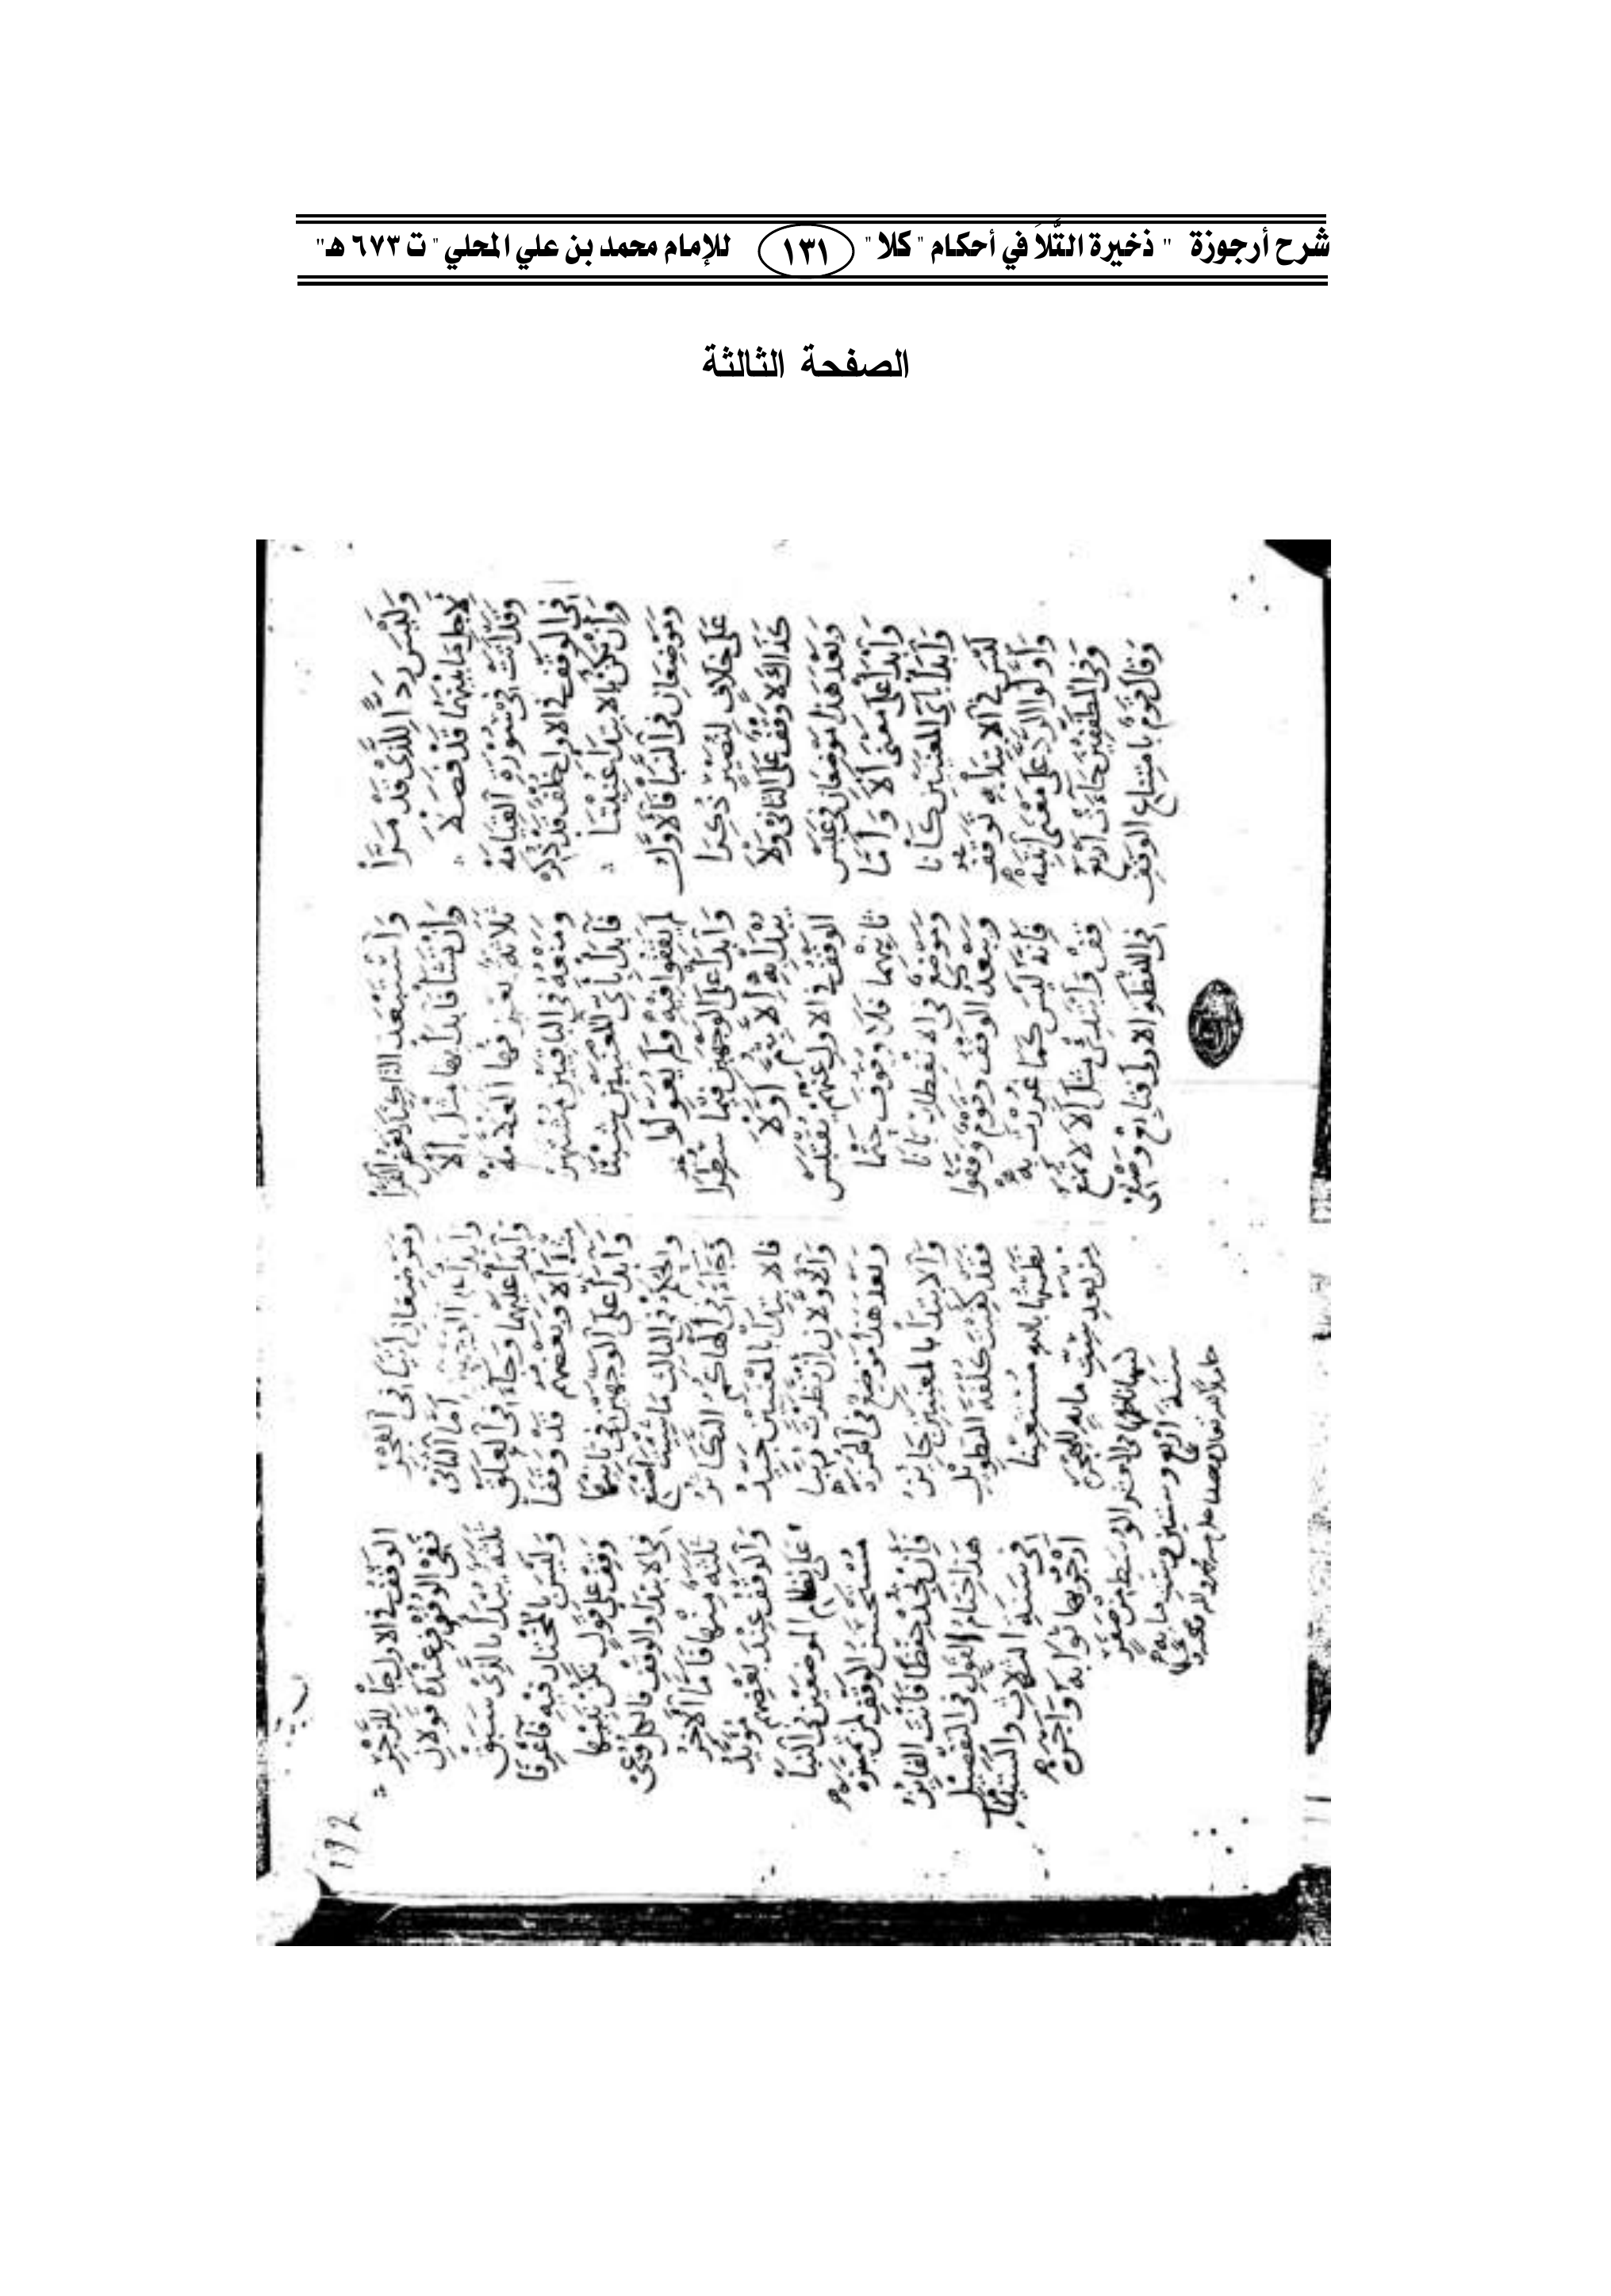 شرح أرجوزة " ذخيرة التَّلاَ في أحكام " كلا " ١٣١ للإمام محمد بن علي المحلي " ت ٦٧٣ هـ"
الصفحة الثالثة
وَلَيْسَ رَدًّا لِلَّذِي قَدْ مَرَّا وَاسْتَبْعَدَ بعض القرا
لأجل ما بينهما قد فصلا وإن تشأ فابدأ بها مثل ألا
وقد أتت في سورة القيامه ثلاثة العلامه
في الوقف في الاول خلف قد ذكر ومنعه في الباقيين مشتهر
وإن تكن بالابتدا عنيتا فابدأ بأي المعنيين شيتا
وموضعان في النبأ فالأول لم يقفوا فيه ولم يعولوا
على خلاف لنصير ذكرا وابدأ على الوجهين فيما سطرا
كذاك لا وقف على الثاني ولا يبدا به إلا بثم أولا
وبعد هذا موضعان في عبس الوقف في الاول عنهم يقتبس
وابدأ على معنى ألا وأما ثانيهما فلا وقوف حتما
وابدأ بأي المعنيين كانا وموضع في الانفطار بانا
ليس في الابتدا به توقف الوقف وقوم وقفوا
وأولوا الرد على معنى انتبه فإنه ليس كما غررت به
وفي المطففين جاءت أربع قف وابتدئ مثل ألا لا تمنع
وقال قوم بامتناع الوقف في اللفظة الاولى وصفي
وموضعان أتيا في الفجر الوقف في الاول جا للزجر
وابدأ أما الثاني ففي الوقوف عنده قولان
وابدأ عليهما وجاء في العلق ثلثة يبدا بالذي سبق
مثل ألا وبعضهم قد وقفا وليس بالمختار فيه فاعرفا
وابدأ على الوجهين في ثانيها وقف على قول تكن نبيها
والحكم في الثالث ما شئت اصنع في الابتدا والوقف
وجاء في ألهاكم التكاثر ثلثة منها فأما الآخر
فالابتدا بالمعنيين جيد والوقف عند بعضهم مؤيد
والاولان إن نظرت رتبا على نظام الموضعين في النبا
وبعد هذا موضع في الهمزه مستحسن الوقف لمن تميزه
والابتدا بالمعنيين جائز فإن تجد حفظا فأنت الفائز
فقد كفيت كلفة التطويل هذا ختام القول في التفصيل
نظمتها بالله مستعينا في سنة الثلاث والستينا
من بعد ست مايه للهجره أرجو بها ثوابه وأجره
في العشر الوسط من صفر
سنة أربع وستين وستمايه
١٩٢